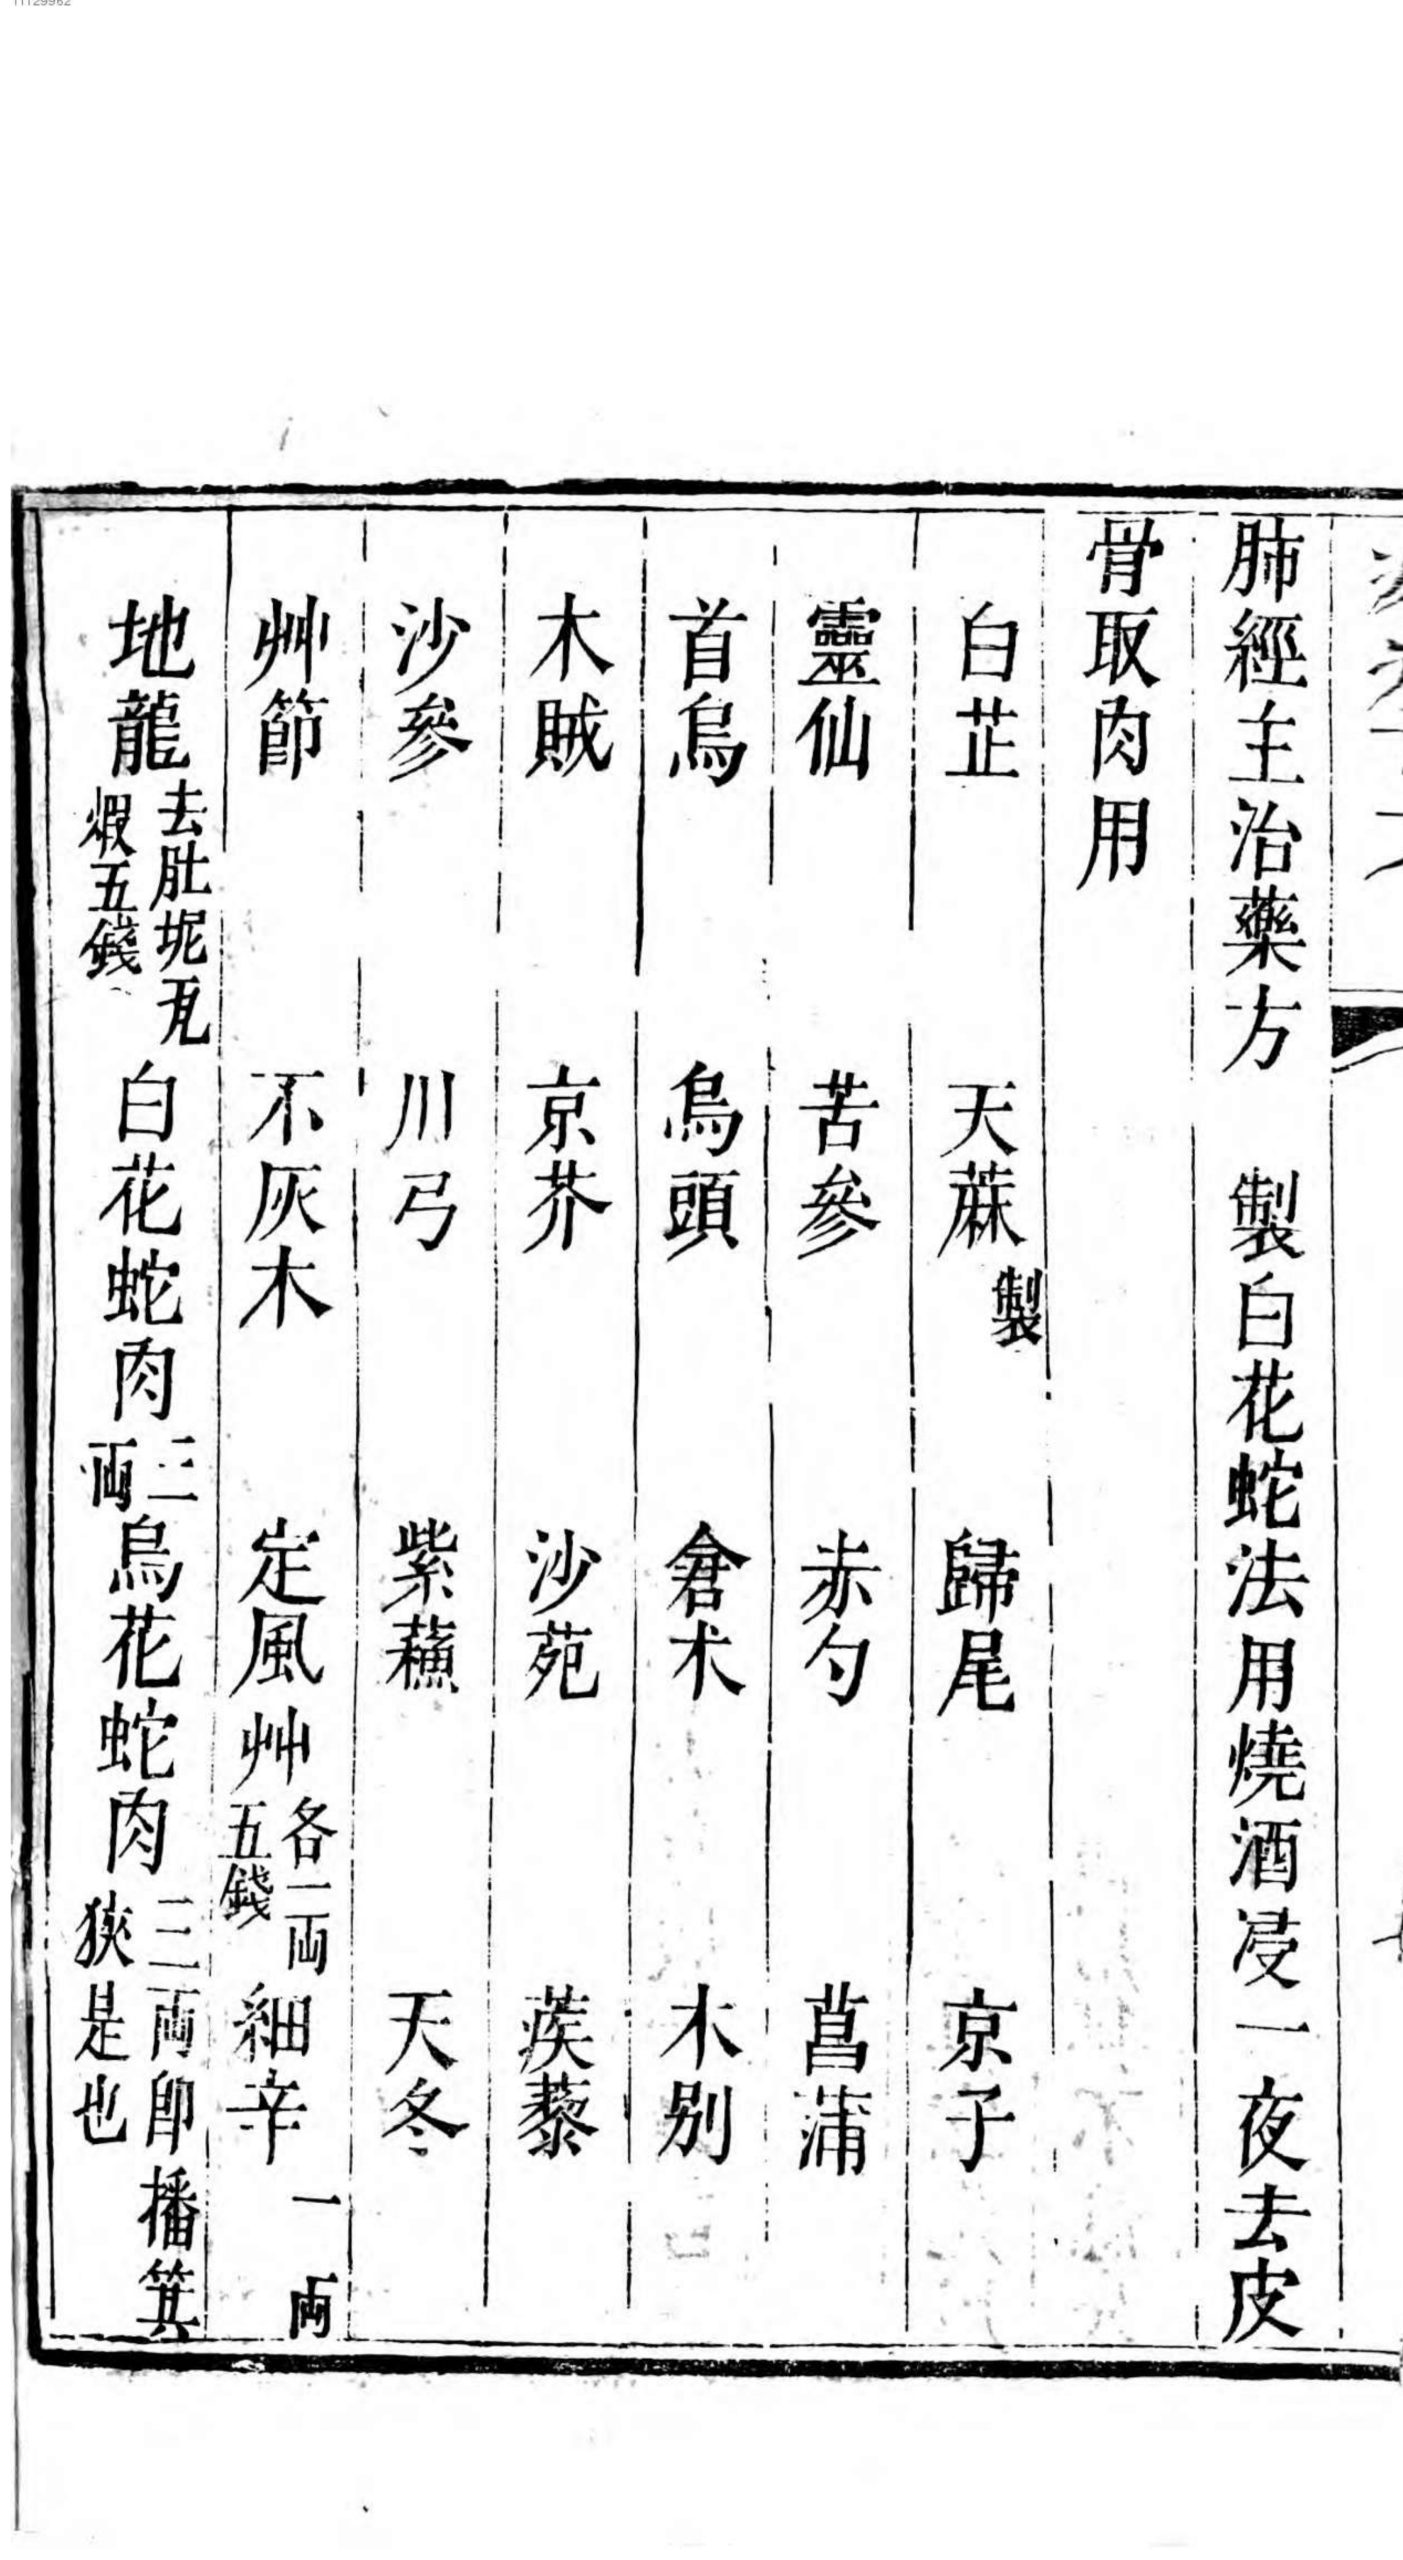 肺經主治藥方　製白花蛇法用燒酒浸一夜去皮
骨取肉用
白芷　天蔴製　歸尾　京子
靈仙　苦參　赤勺　菖蒲
首烏　烏頭　倉朮　木別
木賊　京芥　沙苑　蒺藜
沙參　川弓　紫蘓　天冬
艸節　不灰木　定風艸各二両五錢　細辛一両
地龍去肚坭瓦煆五錢　白花蛇肉三両　烏花蛇肉三両即播箕狹是也